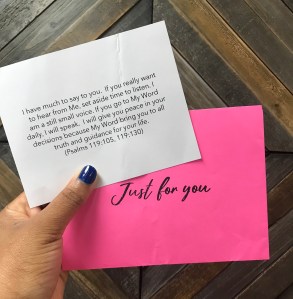 I have much to say to you. If you really want
to hear from Me, set aside time to listen. I
am a still small voice. If you go to My Word
daily, I will speak. I will give you peace in your
decisions because My Word bring you to all
truth and guidance for your life.
(Psalms 119:105, 119:130)
Just for you